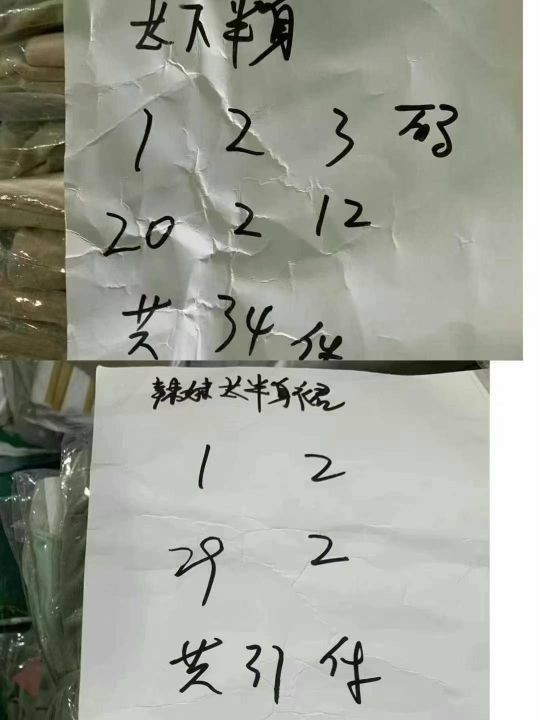 长下半身
1 2 3 码
20 2 12
共 34 件
辣妹长半身裙
1 2
29 2
共 31 件